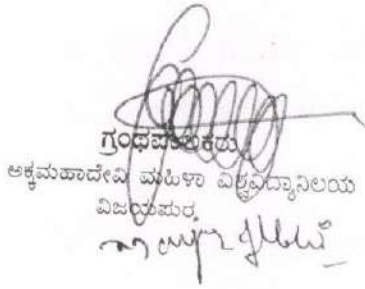 ಗ್ರಂಥಪಾಲಕರು
ಅಕ್ಕಮಹಾದೇವಿ ಮಹಿಳಾ ವಿಶ್ವವಿದ್ಯಾನಿಲಯ
ವಿಜಯಪುರ